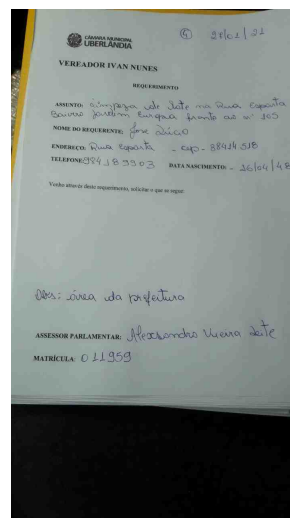 CÂMARA MUNICIPAL
UBERLÂNDIA
27/01/22
VEREADOR IVAN NUNES
REQUERIMENTO
ASSUNTO: Limpeza de lote na Rua Esparta
Bairro Jardim Europa frente ao nº 205
NOME DO REQUERENTE: José
ENDEREÇO: Rua Esparta - cep - 38414518
TELEFONE: 984189303 DATA NASCIMENTO: - 26/04/48
Venho através deste requerimento, solicitar o que se segue:
Obs: área da prefeitura
ASSESSOR PARLAMENTAR: Alexsandro Vieira Leite
MATRÍCULA: 011959